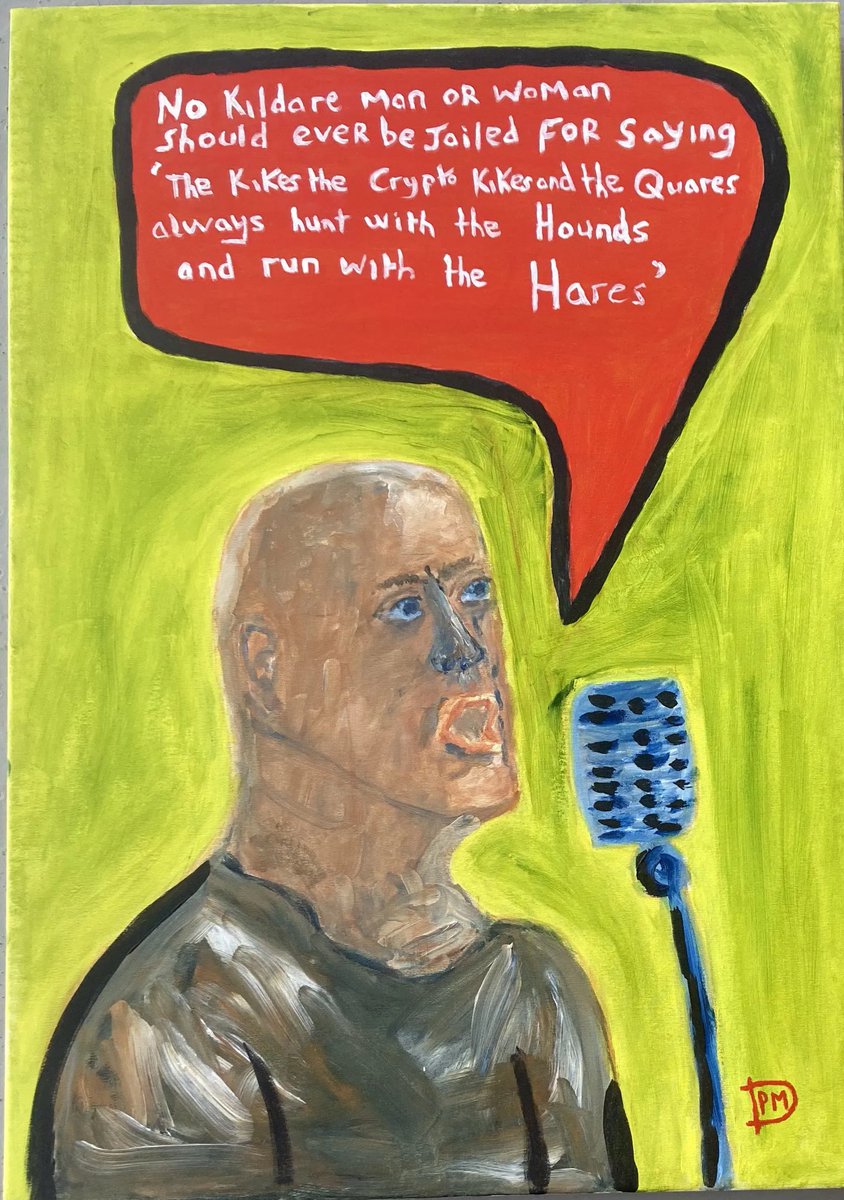 No Kildare man or woman
should ever be Jailed For saying
'The Kikes the Crypto Kikes and the Quares
always hunt with the Hounds
and run with the
Hares'
DPM